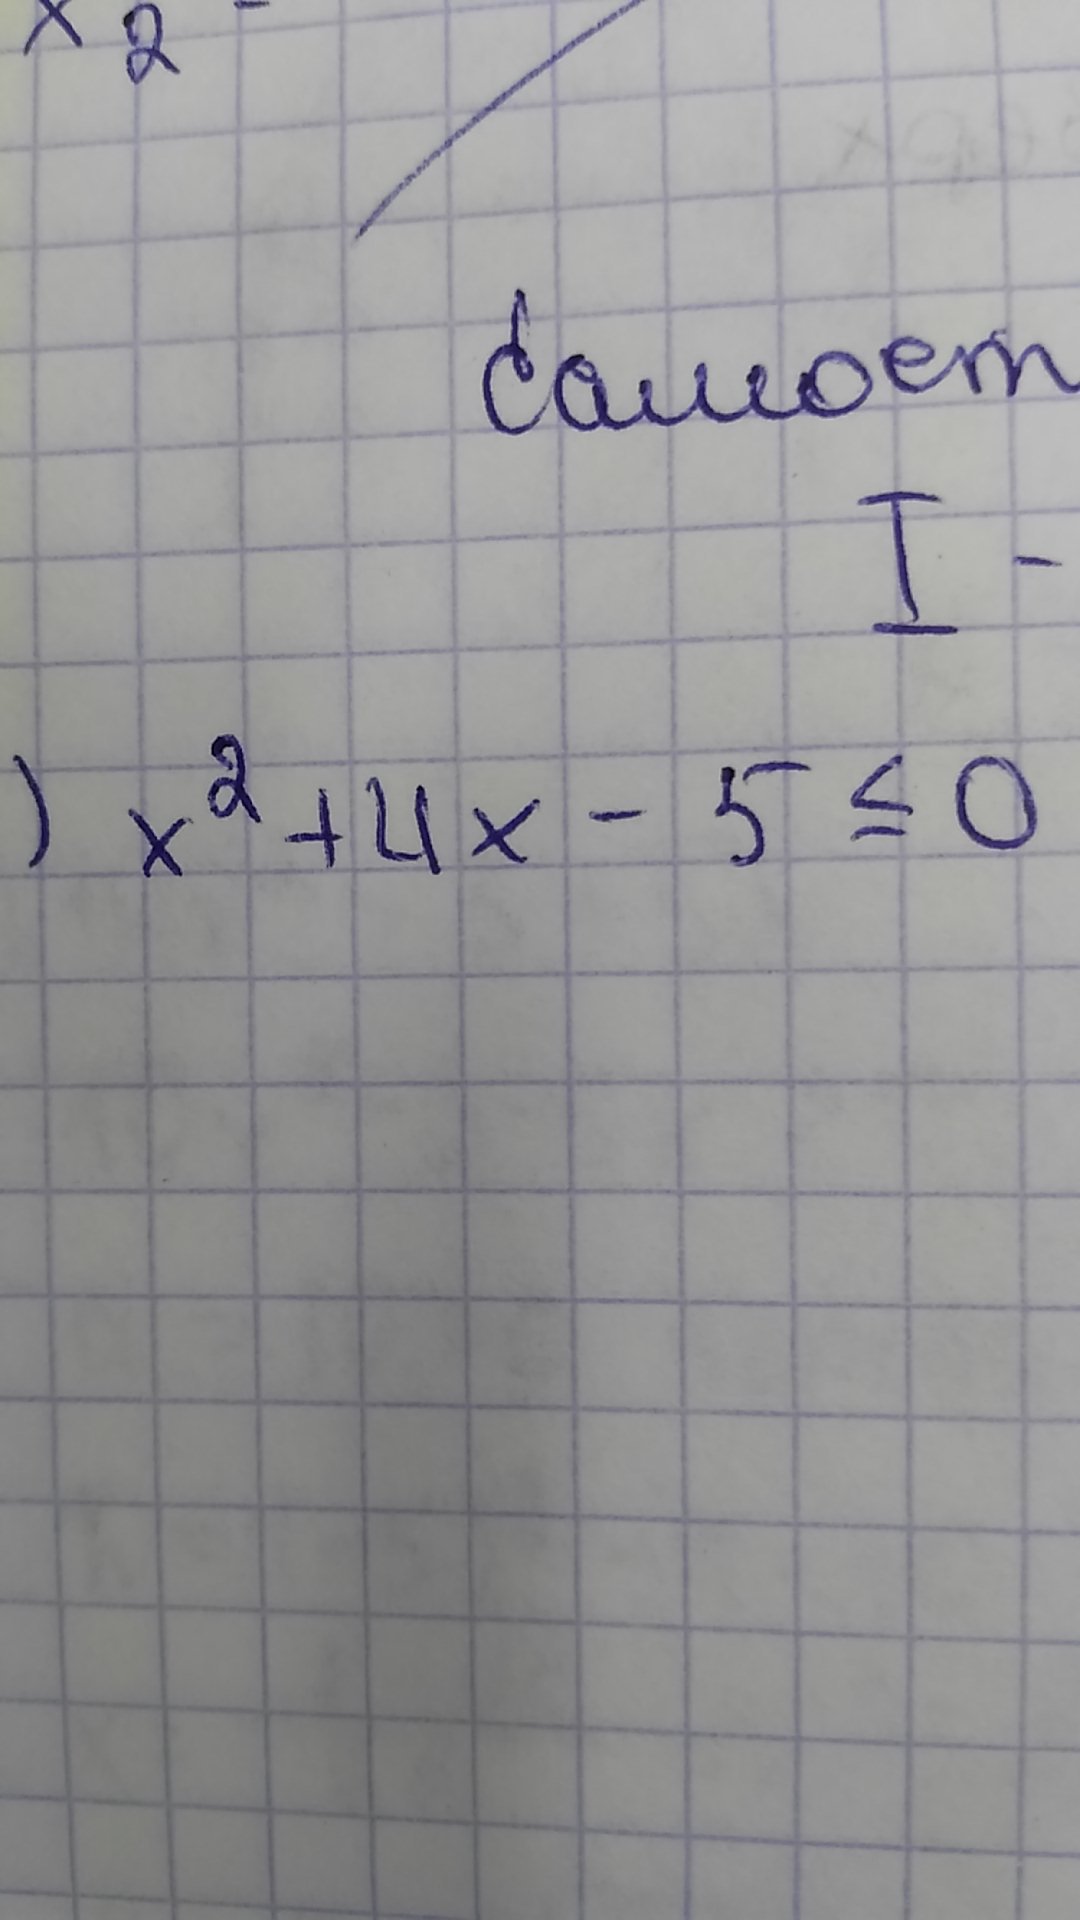 x₂ -
Самост
I -
) x² + 4x - 5 ≤ 0